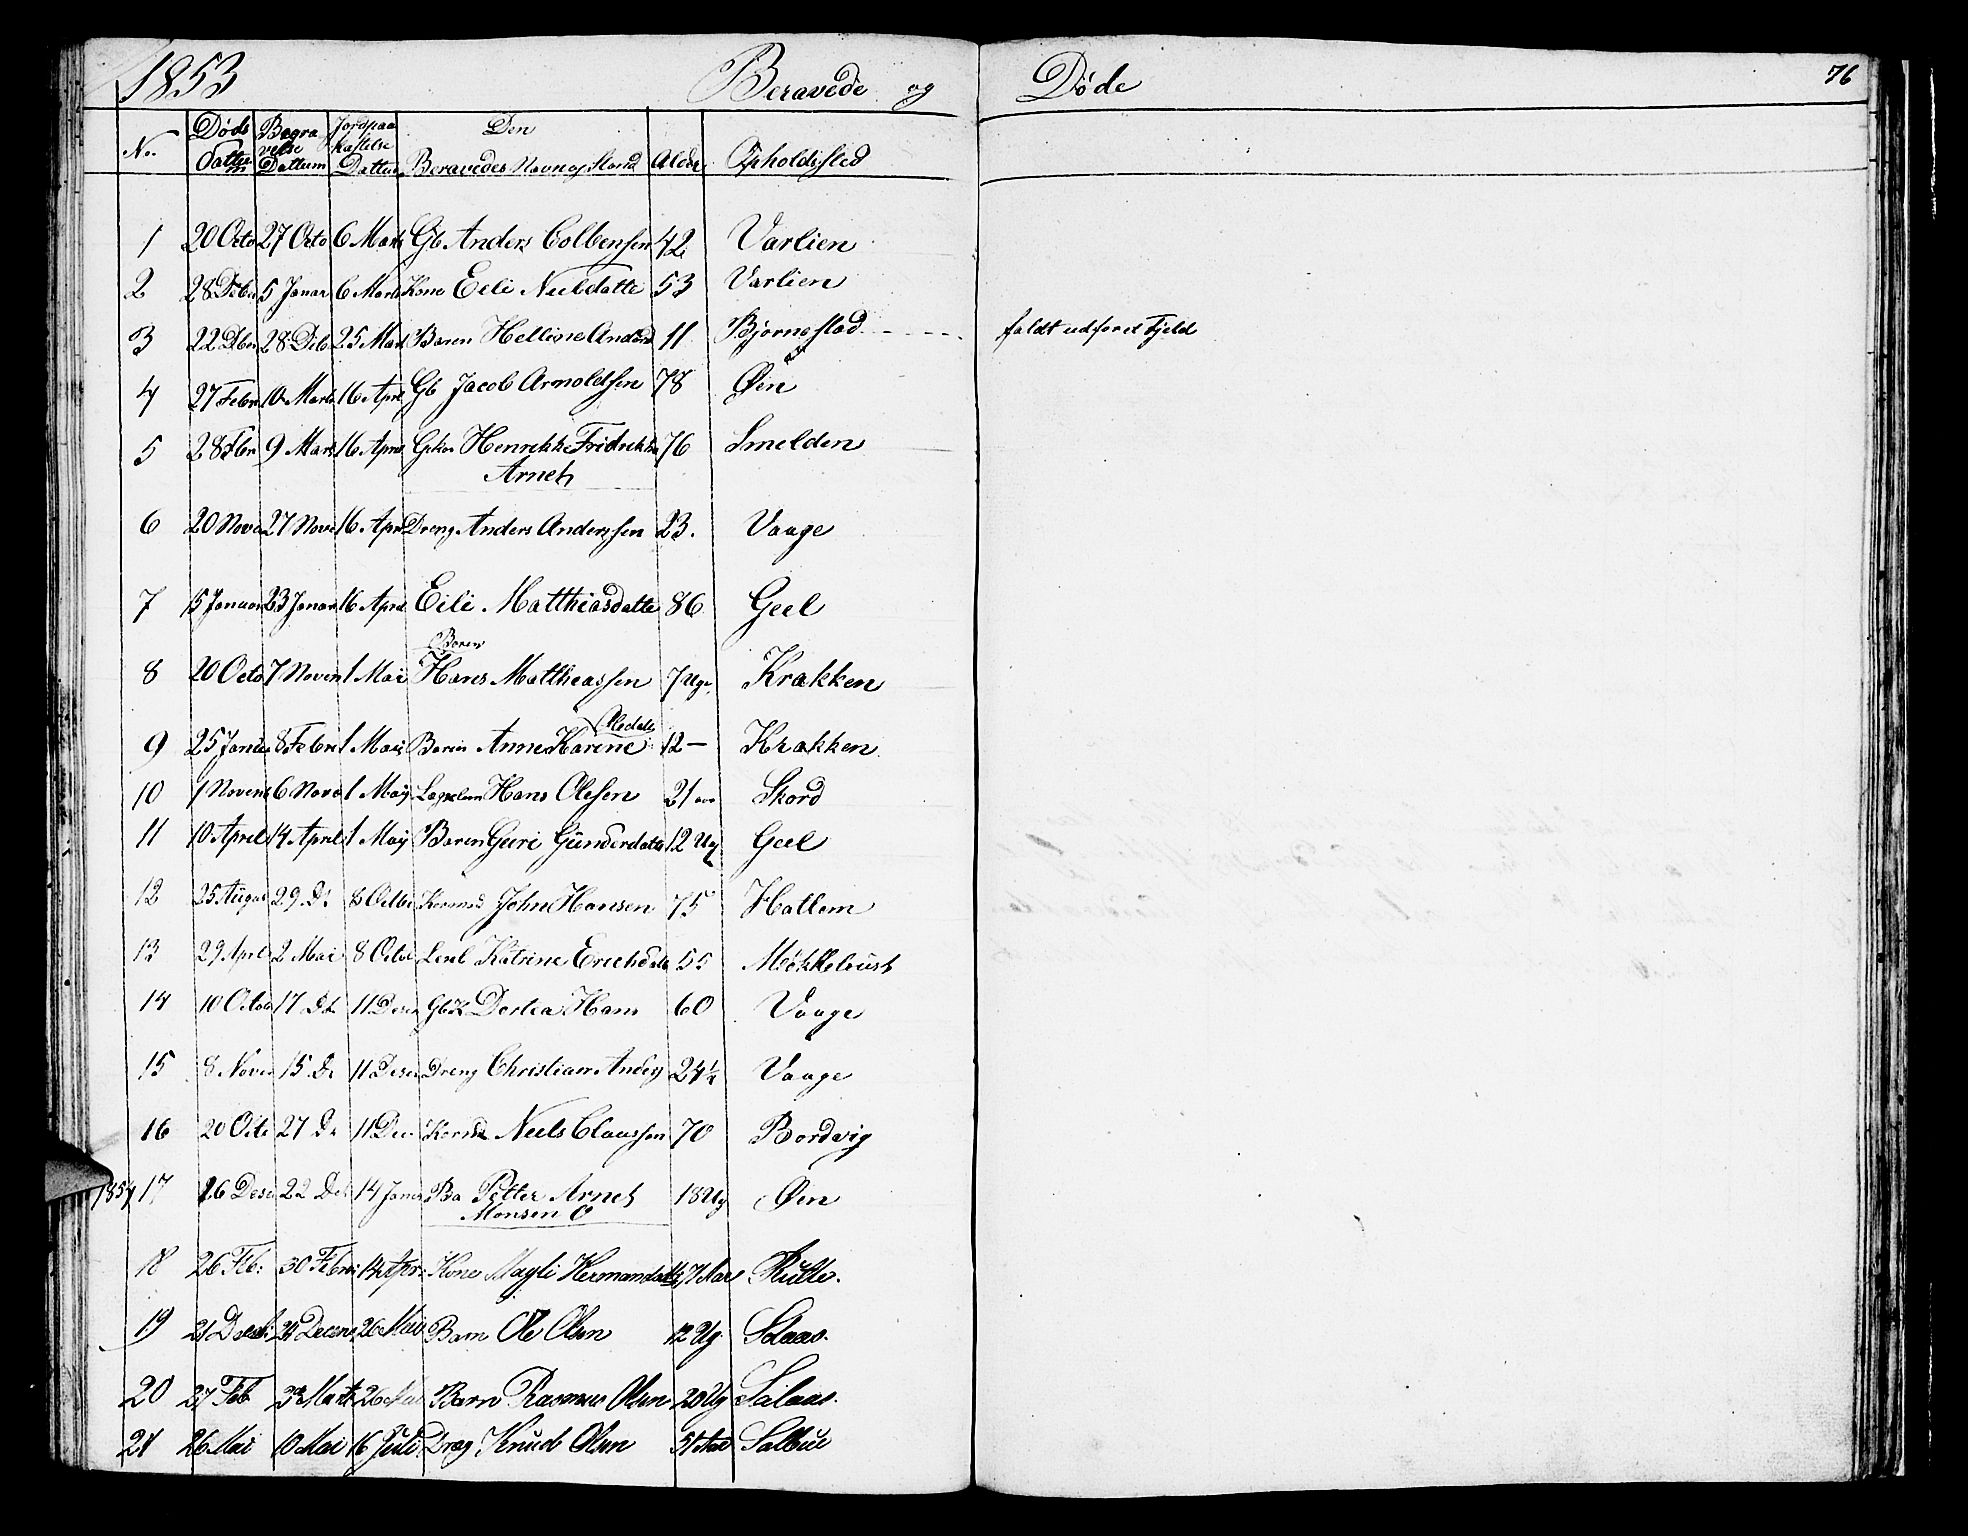 1853 Beravede og Døde 76
No. Døds Dattum Begravelse Dattum Jordpaakastelse Dattum Den Beravedes Navn og Stand Alder Opholdssted
1 20 Octo 27 Octo 6 Marts Gb Anders Colbensen 42 Varlien
2 28 Deber 5 Januar 6 Marts Kone Eeli Nielsdatte 53 Varlien
3 22 Dber 28 Deb 25 Mart Baren Helliene Andersd 11 Bjørnestad faldt udfor et Fjeld
4 27 Febr 10 Marts 16 Apr Gb Jacob Arnoldsen 78 Øen
5 28 Febr 9 Mars 16 Apr Gkon Henrikke Fridrikke 76 Smelden
Arnet
6 20 Nove 27 Nove 16 Apr Dreng Anders Anderssen 23. Vaage
7 15 Januar 23 Januar 16 Apr Eili Matthiasdatte 86 Geel
Baren
8 20 Octo 7 Novem 1 Mai Hans Matthiassen 7 Uge Krakken
9 25 Janua 8 Febr 1 Maij Baren Anne Karine 12 — Krakken
10 1 Novem 6 Nove 1 Maij Hans Olesen 21 Skord
11 10 April 14 April 1 Maij Baren Guri Gunderdatte 12 Ug Geel
12 25 August 29 Dt 8 Octbr John Hansen 75 Hatlem
13 29 Apr 2 Mai 8 Octo Katrine Erichdatte 55 Møkkelbust
14 10 Octob 17 Dt 11 Desem GbK Dortea Hans 60 Vaage
15 8 Novem 15 Dt 11 Desem Dreng Christian Anders 24½ Vaage
16 20 Octo 27 Dt 11 Dec Niels Claussen 70 Bordvig
1854 17 16 Desem 22 Det 14 Januar Ba Petter Arnet 18 Ug Øen
Monsen O
18 26 Feb: 30 Febr: 14 Apr: Kone Magli Hermandatte Rutle.
19 21 Decemb 24 Decem 26 Mai Barn Ole Olsen 12 Ug Solaas.
20 27 Feb 3 Marts 26 Mai Barn Rasmus Olsen 20 Ug Solaas.
21 26 Mai 10 Mai 16 Juli Dreng Knud Olsen 51 Aar Salbue